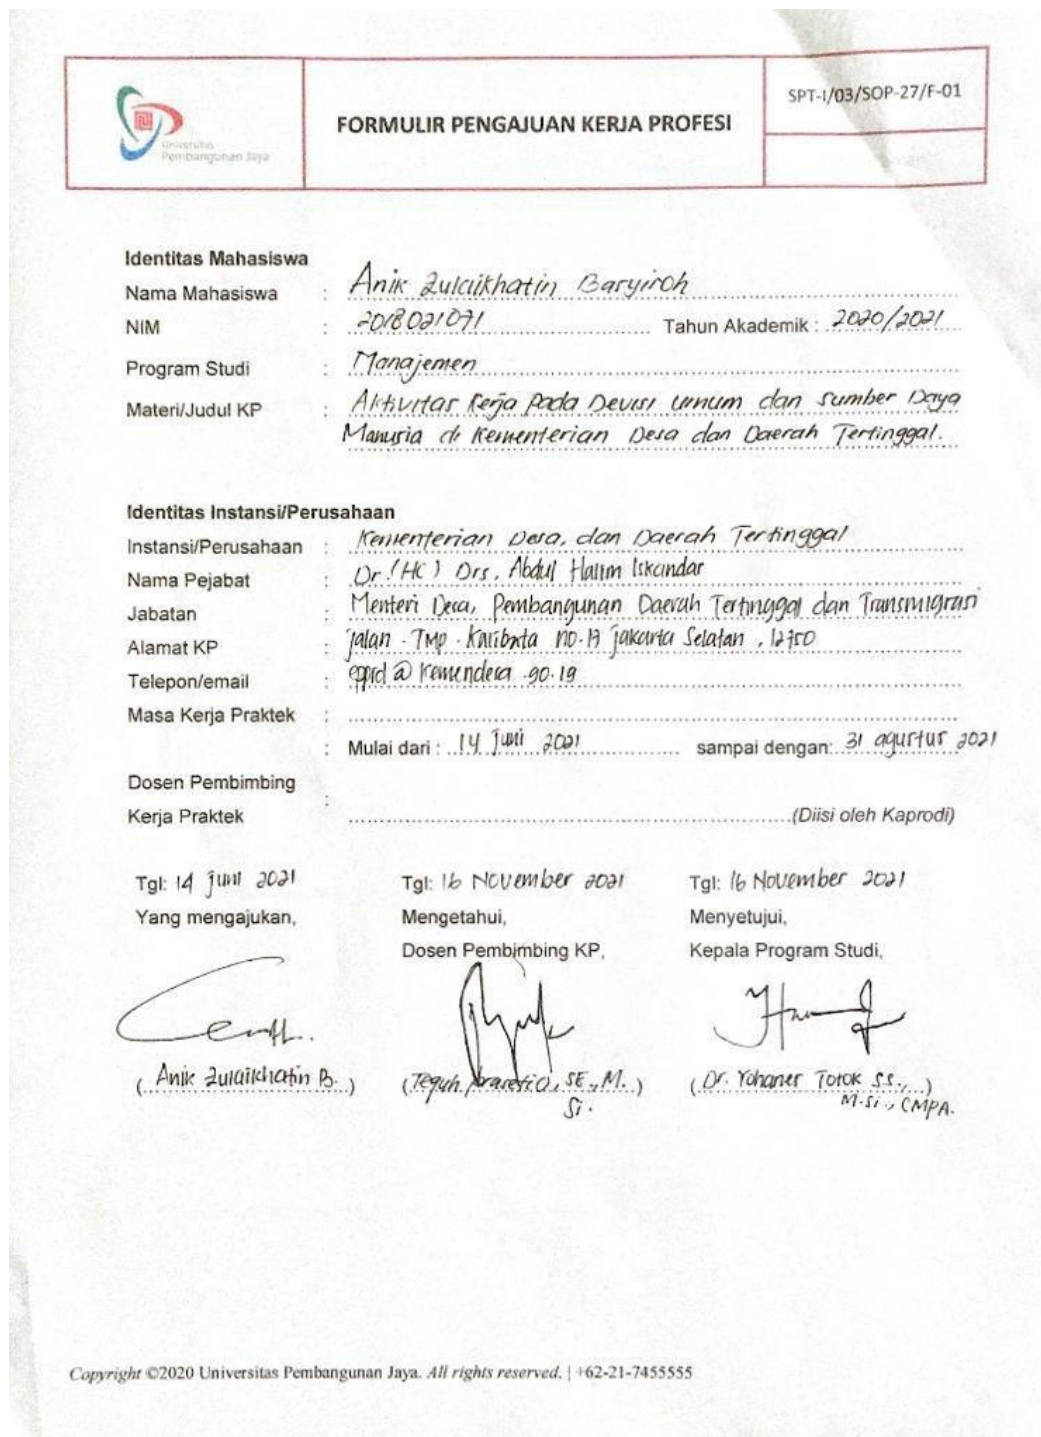 Universitas
Pembangunan Jaya
FORMULIR PENGAJUAN KERJA PROFESI
SPT-I/03/SOP-27/F-01
Identitas Mahasiswa
Nama Mahasiswa : Anik Zulaikhatin Basyiroh
NIM : 2018021071 Tahun Akademik : 2020/2021
Program Studi : Manajemen
Materi/Judul KP : Aktivitas Kerja pada Devisi Umum dan Sumber Daya
Manusia di Kementerian Desa dan Daerah Tertinggal.
Identitas Instansi/Perusahaan
Instansi/Perusahaan : Kementerian Desa, dan Daerah Tertinggal
Nama Pejabat : Dr. (HC) Drs. Abdul Halim Iskandar
Jabatan : Menteri Desa, Pembangunan Daerah Tertinggal dan Transmigrasi
Alamat KP : Jalan . TMP . Kalibata no. 17 Jakarta Selatan , 12750
Telepon/email :
Masa Kerja Praktek :
: Mulai dari : 14 Juni 2021 sampai dengan: 31 agustus 2021
Dosen Pembimbing
:
Kerja Praktek (Diisi oleh Kaprodi)
Tgl: 14 Juni 2021 Tgl: 16 November 2021 Tgl: 16 November 2021
Yang mengajukan, Mengetahui, Menyetujui,
Dosen Pembimbing KP, Kepala Program Studi,
( Anik Zulaikhatin B. ) (Teguh Prasetio, SE., M. ) ( Dr. Yohanes Totok SS., )
Si. M.Si., CMPA.
Copyright ©2020 Universitas Pembangunan Jaya. All rights reserved. | +62-21-7455555